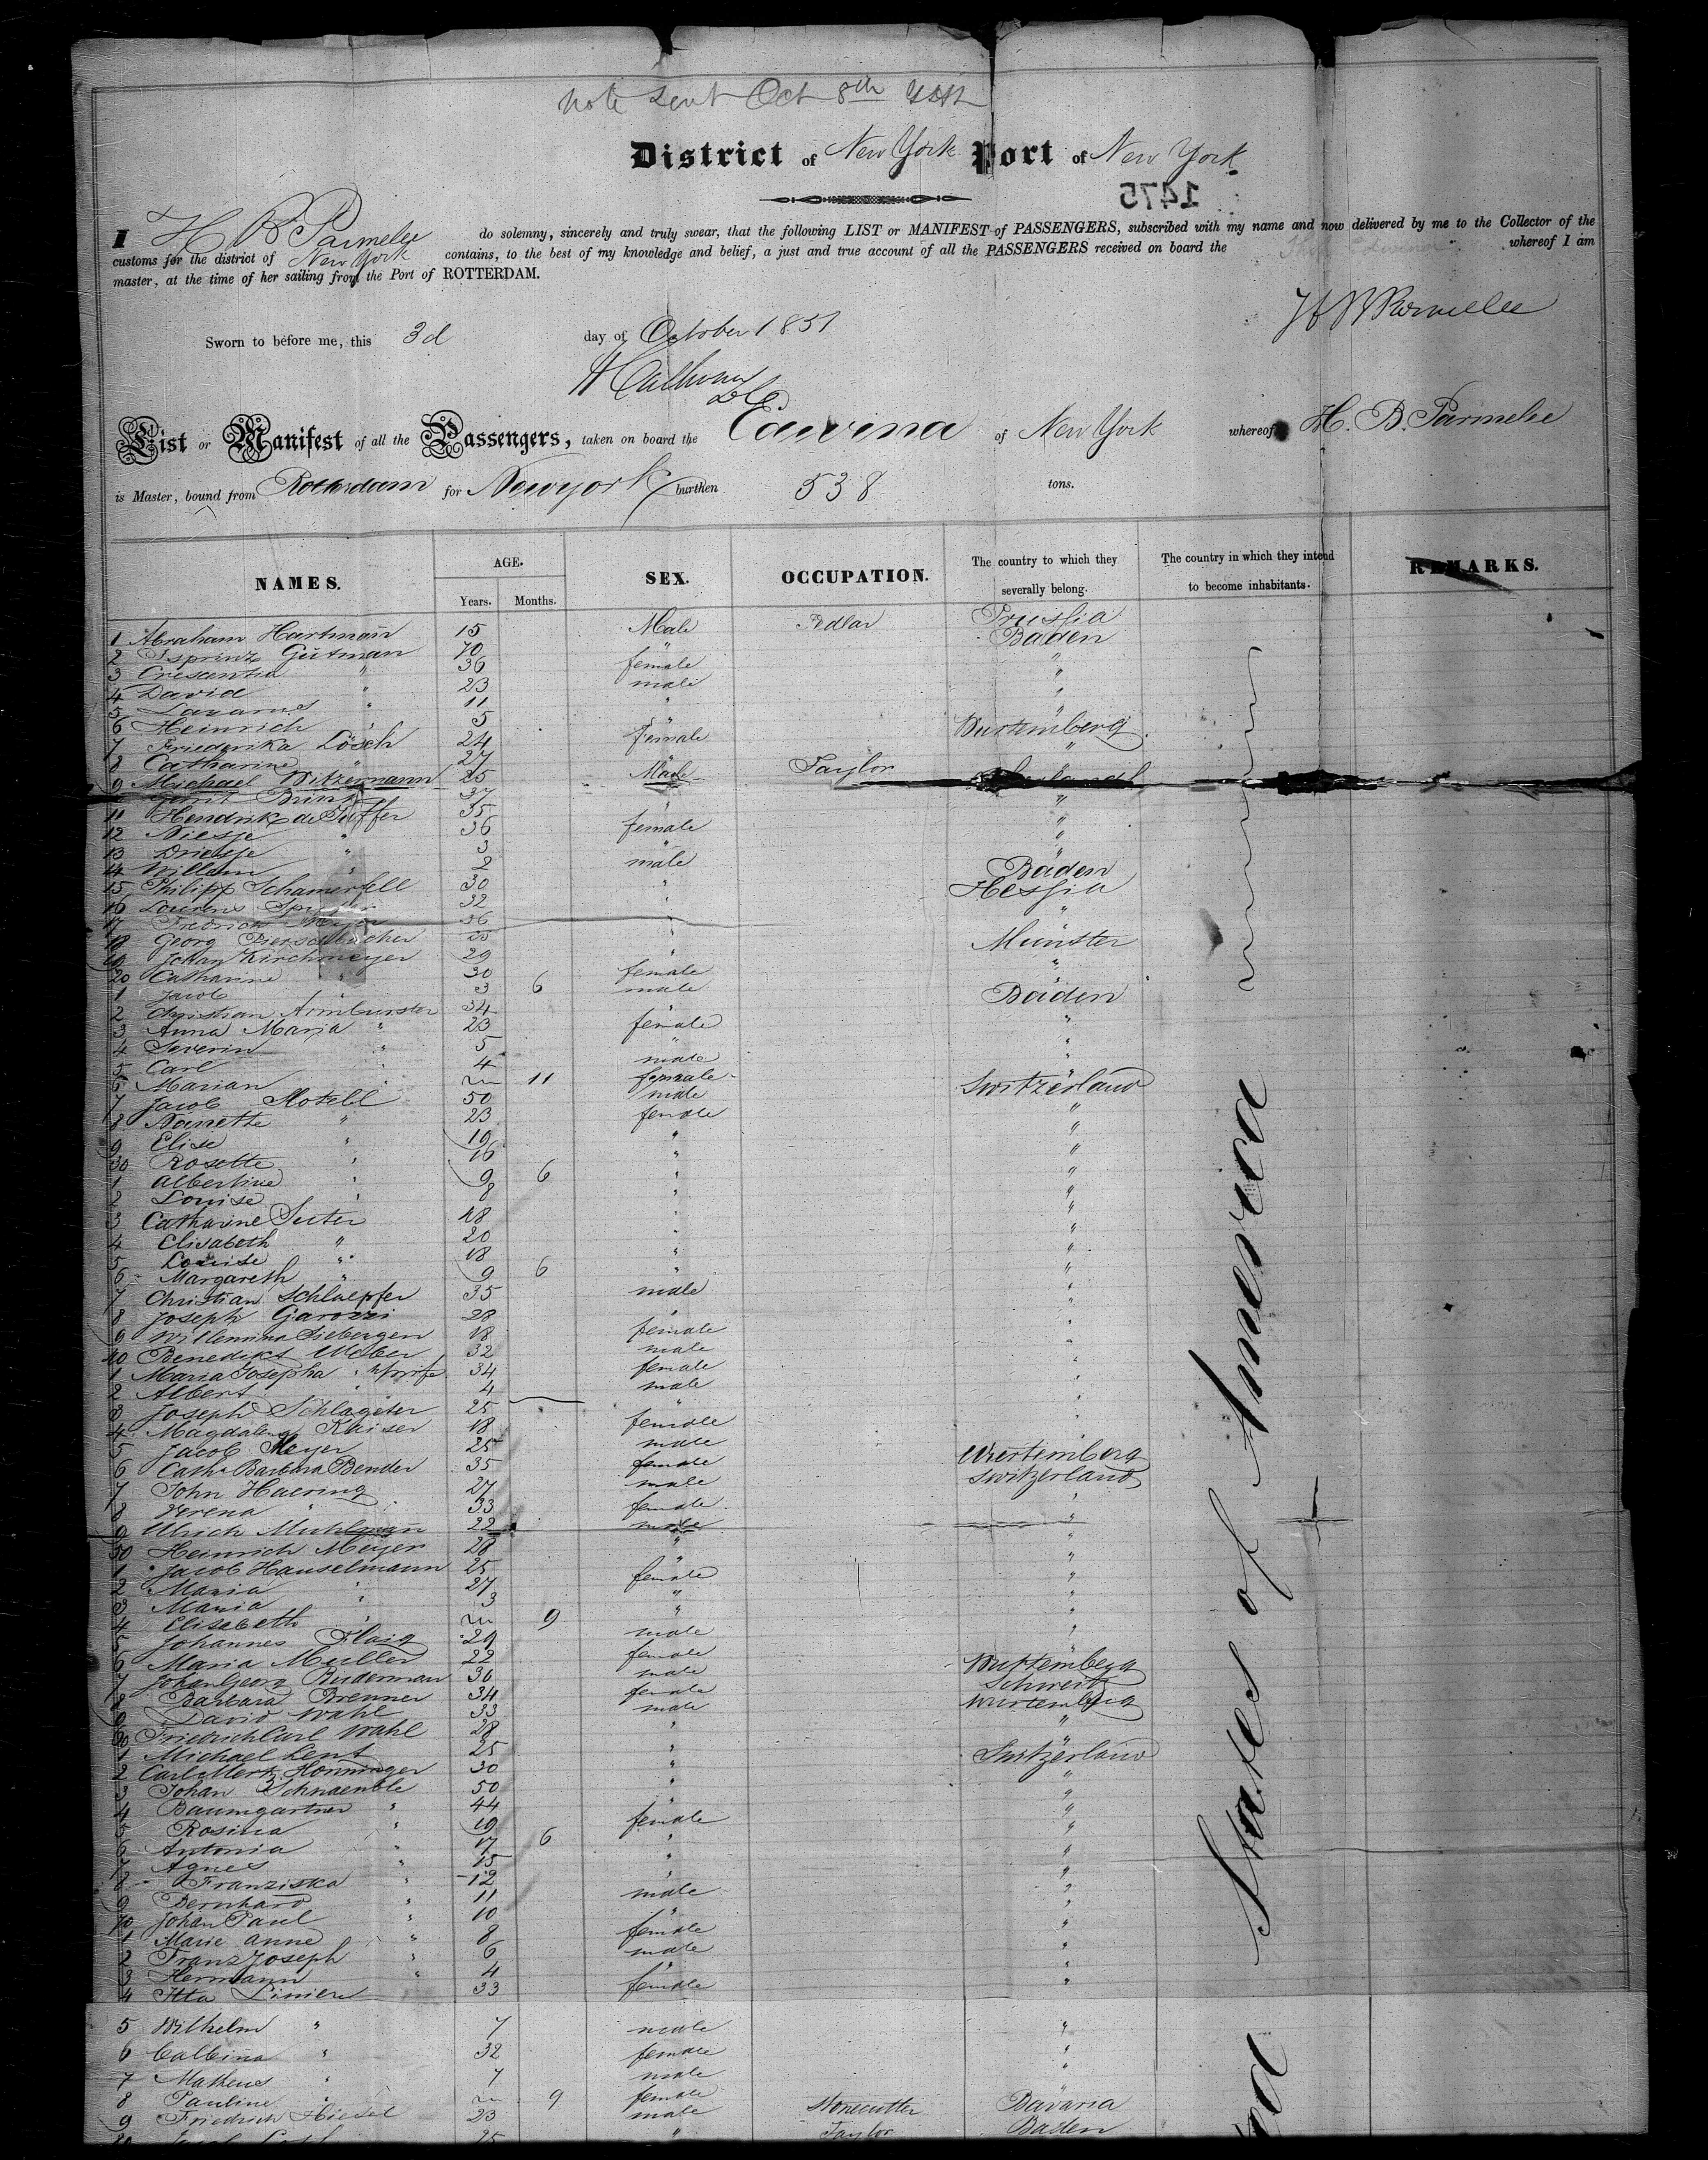 Note sent Oct 8th
District of New York Port of New York
1475
I H B Parmelee do solemny, sincerely and truly swear, that the following LIST or MANIFEST of PASSENGERS, subscribed with my name and now delivered by me to the Collector of the
customs for the district of New York contains, to the best of my knowledge and belief, a just and true account of all the PASSENGERS received on board the whereof I am
master, at the time of her sailing from the Port of ROTTERDAM.
H B Parmelee
Sworn to before me, this 3d day of October 1851
List or Manifest of all the Passengers, taken on board the Edwina of New York whereof H. B. Parmelee
is Master, bound from Rotterdam for Newyork burthen 538 tons.
NAMES. AGE. Years. Months. SEX. OCCUPATION. The country to which they severally belong. The country in which they intend to become inhabitants. REMARKS.
1 Abraham Hartmann 15 Male Pedlar Prussia
2 Gutman 70 " Baden
3 Crescentia " 36 female "
4 David " 23 male "
5 Lazarus " 11 " "
6 Heinrich " 5 " "
7 Friederika Lösch 24 female Wurtemberg
8 Catharine " 27 " "
9 Michael Witzemann 25 Male Taylor "
Gerrit Brink 37 "
11 Hendrik de 35 " "
12 Niesje " 36 female "
13 Driesje " 3 " "
14 Willem " 2 male "
15 Philipp Schamerfell 30 " Baden
16 Lourens 32 " Hessia
17 Fredrich 36 " "
18 Georg 25 "
19 Johan Kirchmeyer 29 " Munster
20 Catharine " 30 female "
1 Jacob " 3 6 male "
2 Christian Armbruster 34 " Baden
3 Anna Maria " 23 female "
4 Severin " 5 " "
5 Carl " 4 male "
6 Marian " 11 female
7 Jacob Motell 50 male Switzerland
8 Nanette " 23 female "
9 Elise " 19 " "
30 Rosette " 16 " "
1 Albertine " 9 6 " "
2 Louise " 8 " "
3 Catharine Suter 48 " "
4 Elisabeth " 20 " "
5 Louise " 18 " "
6 Margareth " 9 6 " "
7 Christian Schlaepfer 35 male "
8 Joseph Garozzi 28 " "
9 Willemina Siebergen 18 female "
40 Benedikt Weber 32 male "
1 Maria Josepha " wife 34 female "
2 Albert " 4 male "
3 Joseph Schlageter 25 " "
4 Magdalena Kaiser 18 female "
5 Jacob Meyer 25 male "
6 Cath. Barbara Bender 35 female Wurtemberg
7 John Haering 27 male Switzerland
8 Verena " 33 female "
9 Ulrich Muhlmann 22 male "
50 Heinrich Meyer 28 " "
1 Jacob Hauselmann 25 " "
2 Maria " 27 female "
3 Maria " 3 " "
4 Elisabeth " 9 " "
5 Johannes Flaig 29 male "
6 Maria Muller 22 female
7 Johan Georg Biederman 36 male Wurtemberg
8 Barbara Brenner 34 female Schweitz
9 David Wahl 33 male Wurtemberg
60 Friedrich Carl Wahl 28 " "
1 Michael Lent 25 " "
2 Carl Honninger 30 " Switzerland
3 Johan Schnaenble 50 " "
4 Baumgartner " 44 " "
5 Rosina " 19 female "
6 Antonia " 17 6 " "
7 Agnes " 15 " "
8 Franziska " 12 " "
9 Bernhard " 11 male "
70 Johan Paul " 10 " "
1 Marie Anne " 8 female "
2 Franz Joseph " 6 male "
3 Hermann " 4 " "
4 Itta 33 female "
5 Wilhelm " 7 male "
6 " 32 female "
7 Matheus " 7 male "
8 Pauline " 9 female
9 Friedrich Hiesel 23 male Stonecutter Bavaria
25 " Taylor Baden
States of America